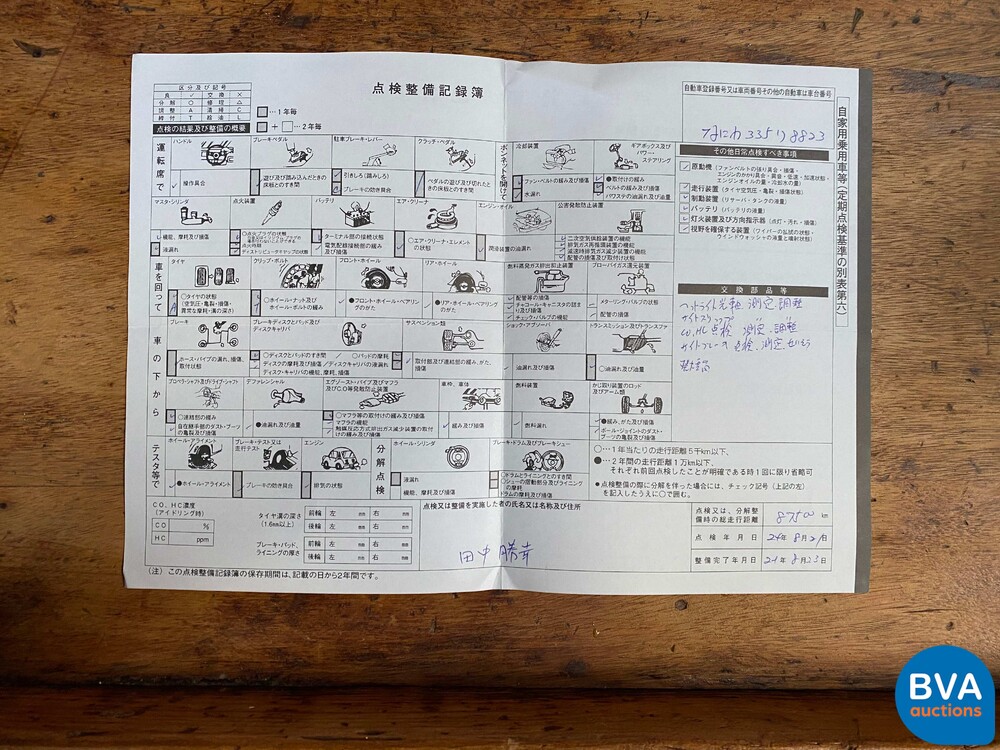 点検整備記録簿
区分及び記号
良 ✓ 交換 ×
分解 ○ 修理 △
調整 A 清掃 C
締付 T 給油 L
…1年毎
+ …2年毎
点検の結果及び整備の概要
自動車登録番号又は車両番号その他の自動車は車台番号
なにわ 335 り 8823
自家用乗用車等(定期点検基準の別表第六)
運転席で
ハンドル
ブレーキペダル
駐車ブレーキ・レバー
クラッチ・ペダル
操作具合
遊び及び踏み込んだときの床板とのすき間
引きしろ(踏みしろ)
ブレーキの効き具合
ペダルの遊び及び切れたときの床板とのすき間
ボンネットを開けて
冷却装置
ファン・ベルトの緩み及び損傷
水漏れ
●取付けの緩み
ベルトの緩み及び損傷
パワステの油漏れ及び油量
マスタ・シリンダ
点火装置
バッテリ
エア・クリーナ
エンジン・オイル
公害発散防止装置
機能、摩耗及び損傷
液漏れ
ターミナル部の接続状態
電気配線接続部の緩み及び損傷
○エア・クリーナ・エレメントの状態
車を回って
タイヤ
クリップ・ボルト
フロント・ホイール
リア・ホイール
燃料蒸発ガス排出抑止装置
ブローバイガス還元装置
○タイヤの状態
(空気圧・亀裂・損傷・異常な摩耗・溝の深さ)
○ホイール・ナット及びボルトの緩み
●フロント・ホイール・ベアリングのがた
●リア・ホイール・ベアリングのがた
配管等の損傷
チャコール・キャニスタの詰まり及び損傷
チェック・バルブの機能
メターリング・バルブの状態
配管の損傷
車の下から
ブレーキ
ブレーキディスクとパッド及びディスクキャリパ
サスペンション類
ショック・アブソーバ
ホース・パイプの漏れ、損傷、取付け状態
○ディスクとパッドのすき間 / ○パッドの摩耗
ディスクの摩耗及び損傷 / ディスクキャリパの液漏れ
ディスク・キャリパの機能、摩耗、損傷
取付部及び連結部の緩み、がた、損傷
油漏れ及び損傷
○油漏れ及び油量
プロペラ・シャフト及びドライブ・シャフト
デファレンシャル
エグゾースト・パイプ及びマフラ
車枠、車体
燃料装置
かじ取り装置のロッド及びアーム類
○連結部の緩み
自在継手部のダスト・ブーツの亀裂及び損傷
●油漏れ及び油量
○マフラ等の取付けの緩み及び損傷
マフラの機能
緩み及び損傷
燃料漏れ
●緩み、がた及び損傷
ボール・ジョイントのダスト・ブーツの亀裂及び損傷
テスタ等で
ホイール・アライメント
ブレーキ・テスト又は走行テスト
エンジン
●ホイール・アライメント
ブレーキの効き具合
排気の状態
分解点検
ホイール・シリンダ
ブレーキ・ドラム及びブレーキシュー
液漏れ
機能、摩耗及び損傷
○ドラムとライニングとのすき間
シューの摺動部分及びライニングの摩耗
ドラムの摩耗及び損傷
その他日常点検すべき事項
原動機(ファンベルトの張り具合・損傷・
エンジンのかかり具合・異音・低速・加速状態・
エンジンオイルの量・冷却水の量)
走行装置(タイヤ空気圧・亀裂・損傷状態)
制動装置(リザーバ・タンクの液量)
バッテリ(バッテリの液量)
灯火装置及び方向指示器(点灯・汚れ・損傷)
視野を確保する装置(ワイパーの払拭の状態・
ウインドウォッシャの液量と噴射状態)
交換部品等
ヘットライト光軸 測定、調整
サイトスリップ
CO,HC点検 測定、調整
○…1年当たりの走行距離5千km以下、
●…2年間の走行距離1万km以下、
それぞれ前回点検したことが明確である時1回に限り省略可
●点検整備の際に分解を伴った場合には、チェック記号(上記の左)を記入したうえに○で囲む。
CO、HC濃度
(アイドリング時)
CO %
HC ppm
タイヤ溝の深さ
(1.6mm以上)
前輪 左 mm 右 mm
後輪 左 mm 右 mm
ブレーキ・パッド、
ライニングの厚さ
前輪 左 mm 右 mm
後輪 左 mm 右 mm
点検又は整備を実施した者の氏名又は名称及び住所
田中勝幸
点検又は、分解整備時の総走行距離 87500 km
点検年月日 24年8月21日
整備完了年月日 24年8月23日
(注)この点検整備記録簿の保存期間は、記載の日から2年間です。
BVA
auctions